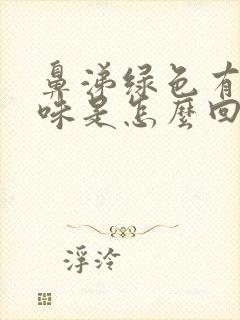 鼻涕绿色有
味是怎麼回
浮泠